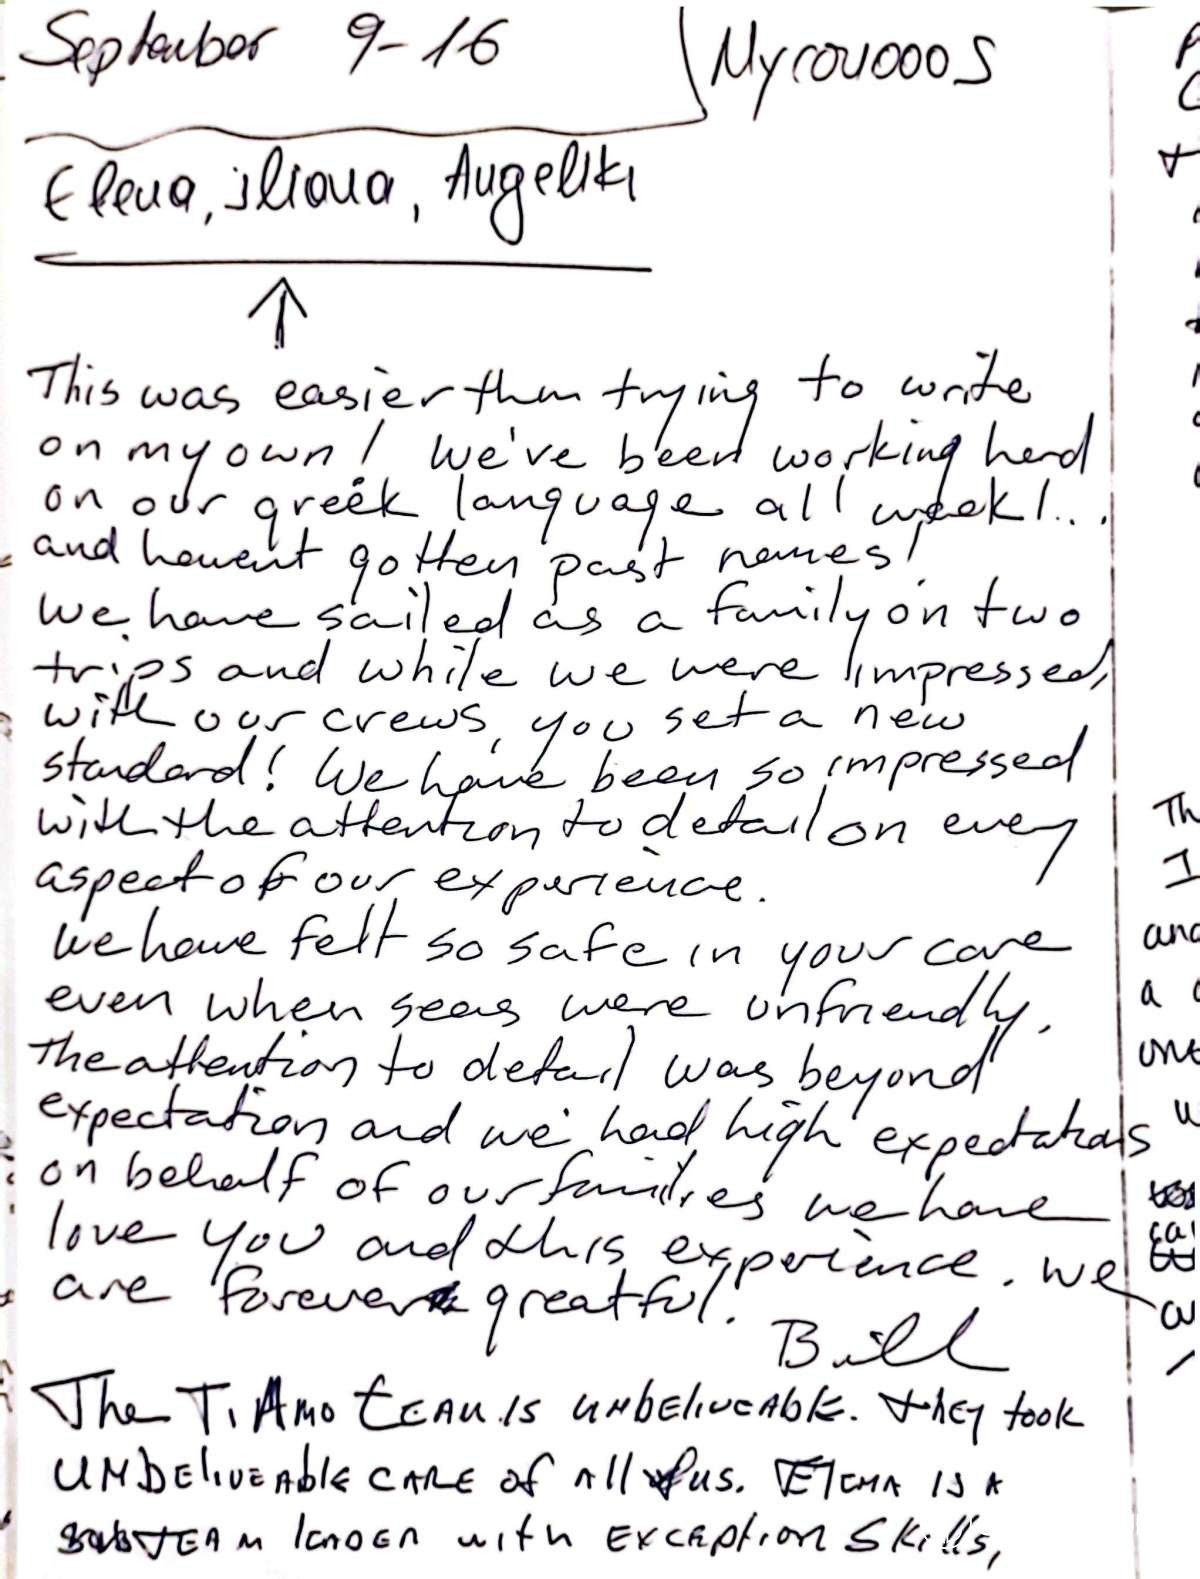 September 9-16
Myrovooos
Elena, iliana, Angeliki
This was easier than trying to write
on my own! We've been working hard
on our greek language all week!...
and havent gotten past names!
We have sailed as a family on two
trips and while we were impressed,
with our crews, you set a new
standard! We have been so impressed
with the attention to detail on every
aspect of our experience.
We have felt so safe in your care
even when seas were unfriendly.
The attention to detail was beyond
expectation and we had high expectations
on behalf of our families we have
love you and this experience. We
are forever greatful!
Bill
The Ti Amo team is unbeliveable. They took
unbeliveable care of all of us. Elena is a
team leader with exception skills,
Th
I
and
a
one